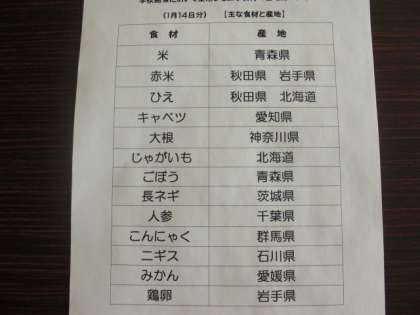 （1月14日分）　【主な食材と産地】
食 材　産 地
米　青森県
赤米　秋田県　岩手県
ひえ　秋田県　北海道
キャベツ　愛知県
大根　神奈川県
じゃがいも　北海道
ごぼう　青森県
長ネギ　茨城県
人参　千葉県
こんにゃく　群馬県
ニギス　石川県
みかん　愛媛県
鶏卵　岩手県